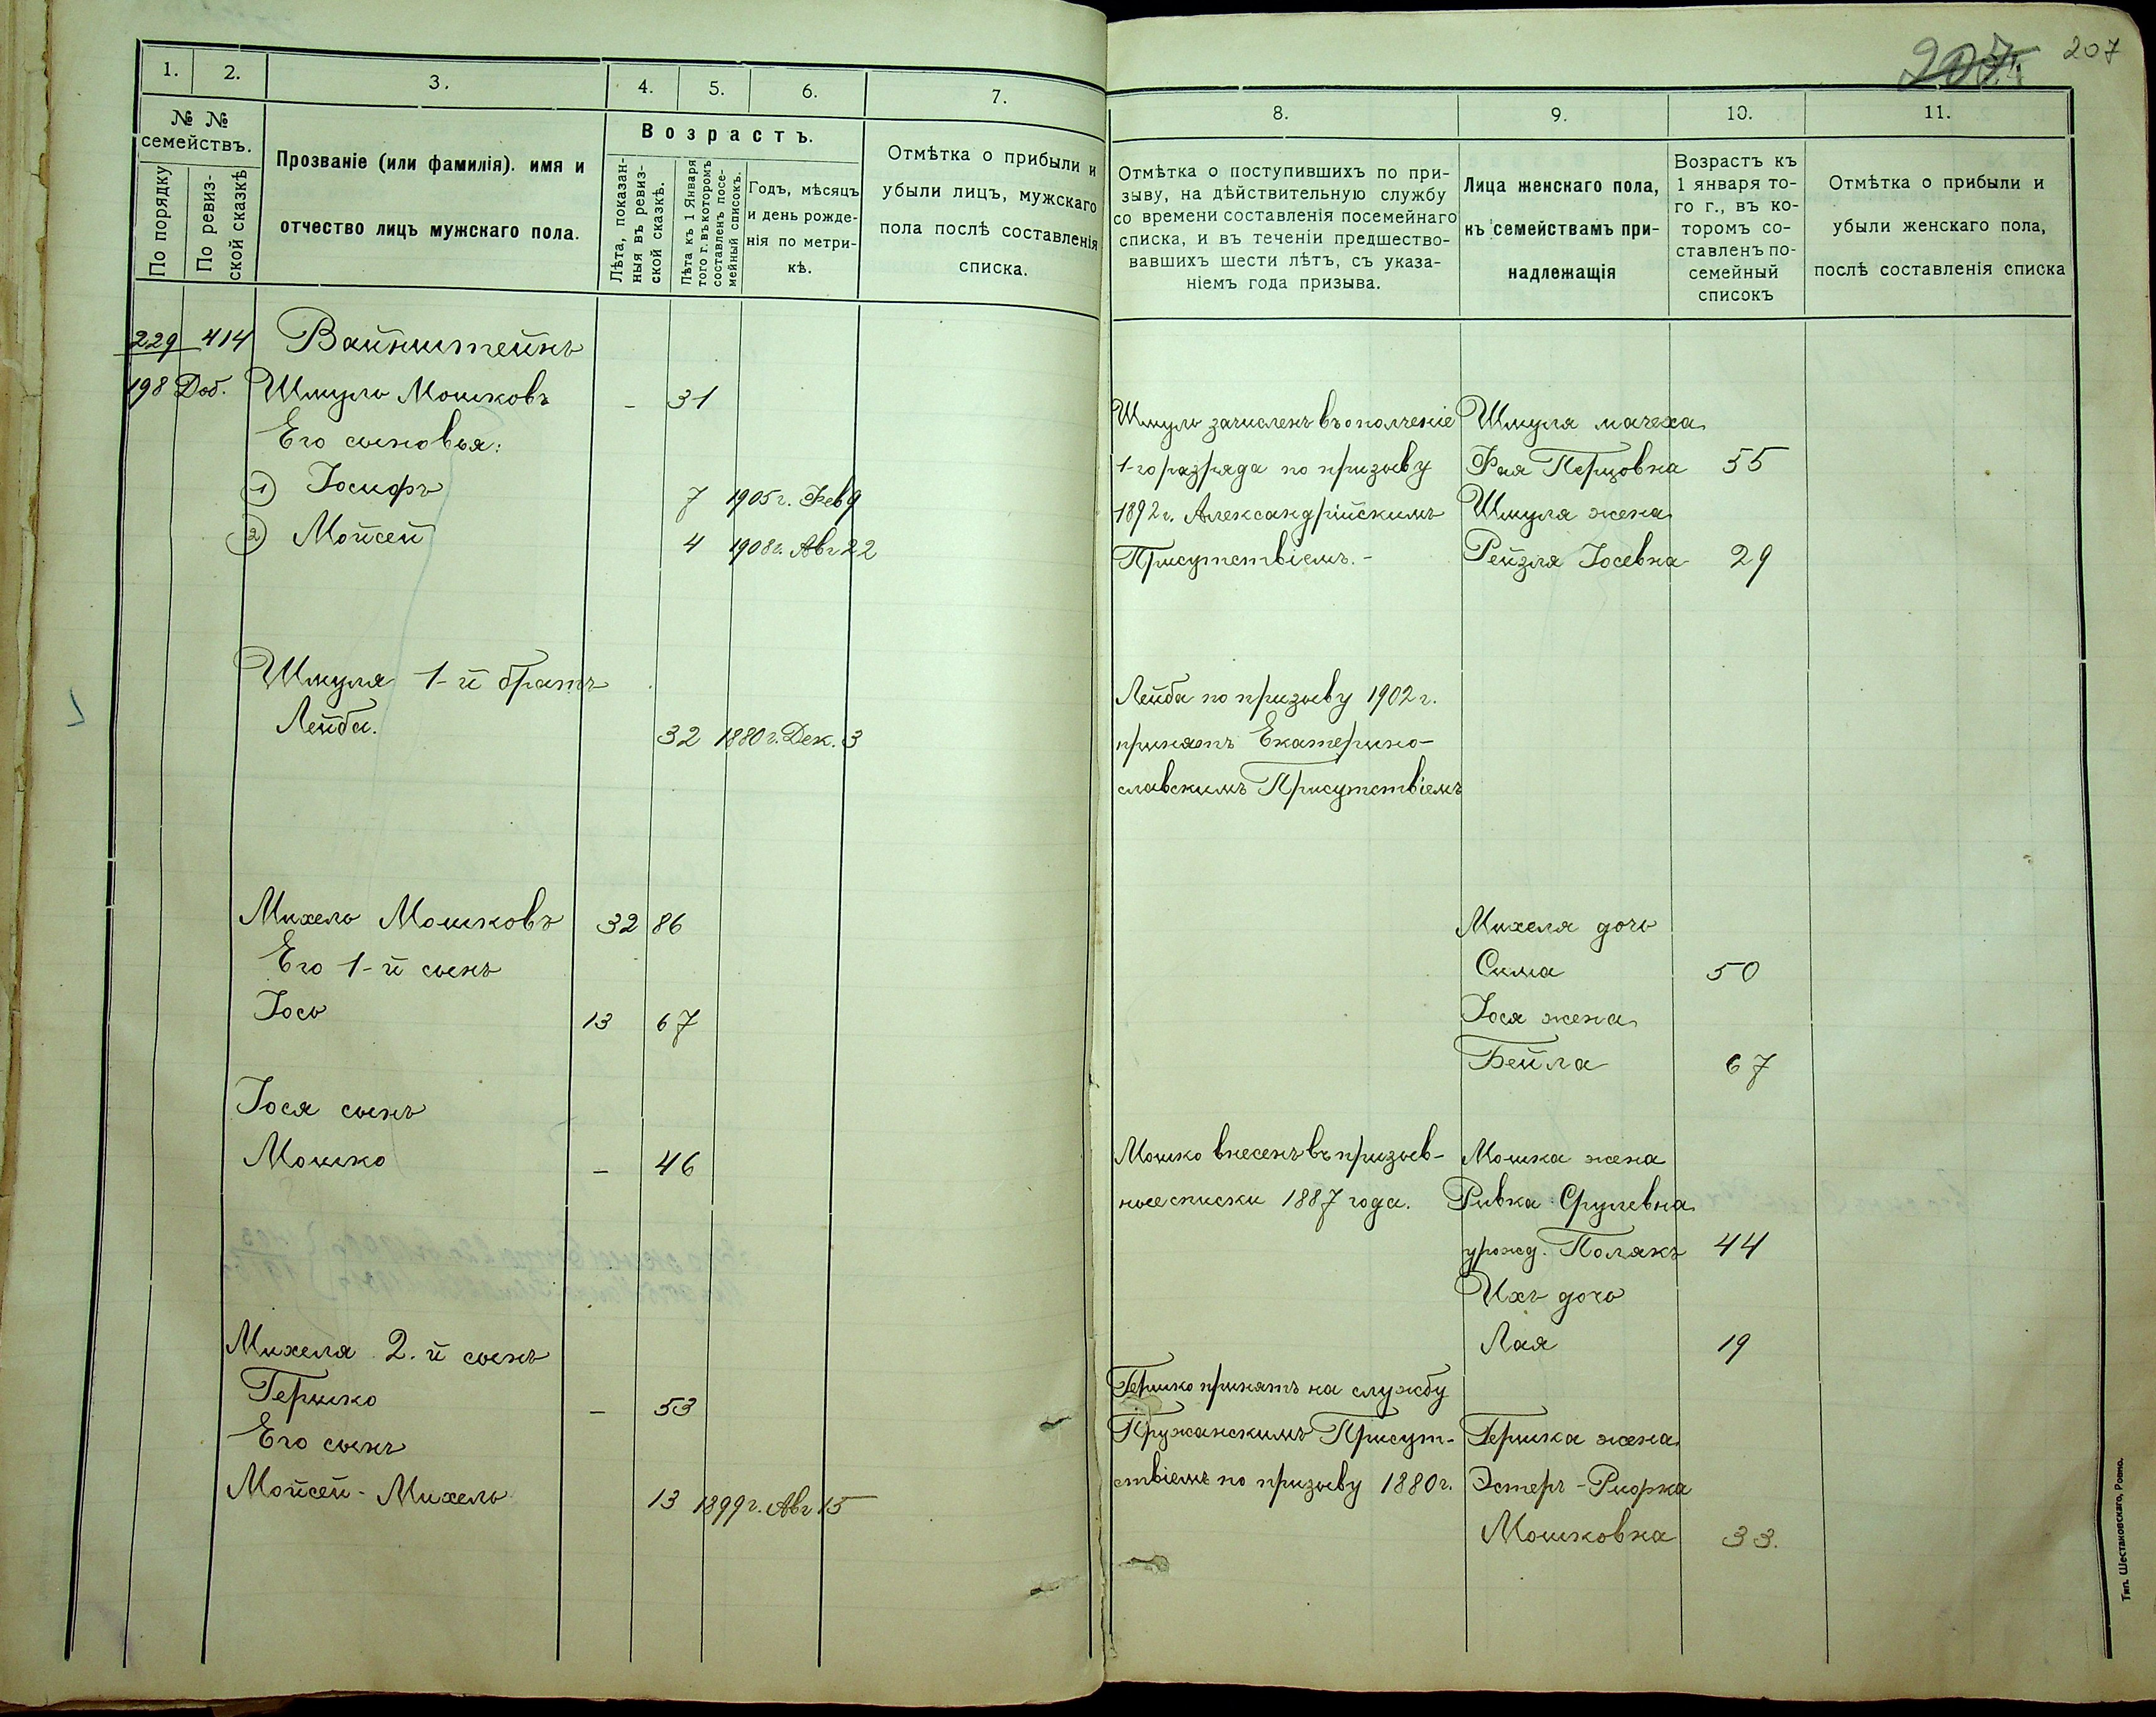 1. 2. 3. 4. 5. 6. 7.
№ №
семействъ.
По порядку
По ревиз-
ской сказкѣ
Прозваніе (или фамилія). имя и
отчество лицъ мужскаго пола.
Возрастъ.
Лѣта, показан-
ныя въ ревиз-
ской сказкѣ.
Лѣта къ 1 Января
того г. въ которомъ
составленъ посе-
мейный списокъ.
Годъ, мѣсяцъ
и день рожде-
нія по метри-
кѣ.
Отмѣтка о прибыли и
убыли лицъ, мужскаго
пола послѣ составленія
списка.
229 414 Вайнштейнъ
198 Доб. Шмуль Мошковъ - 31
Его сыновья:
1) Іосифъ 7 1905 г. Фев 9
2) Мойсей 4 1908 г. Авг 22
Шмуля 1-й братъ
Лейба. 32 1880 г. Дек. 3
Михель Мошковъ 32 86
Его 1-й сынъ
Іось 13 67
Іося сынъ
Мошко - 46
Михеля 2-й сынъ
Гершко - 53
Его сынъ
Мойсей-Михель 13 1899 г. Авг 15
207
8. 9. 10. 11.
Отмѣтка о поступившихъ по при-
зыву, на дѣйствительную службу
со времени составленія посемейнаго
списка, и въ теченіи предшество-
вавшихъ шести лѣтъ, съ указа-
ніемъ года призыва.
Лица женскаго пола,
къ семействамъ при-
надлежащія
Возрастъ къ
1 января то-
го г., въ ко-
торомъ со-
ставленъ по-
семейный
списокъ
Отмѣтка о прибыли и
убыли женскаго пола,
послѣ составленія списка
Шмуль зачисленъ въ ополченіе Шмуля мачеха
1-го разряда по призыву Фая Перцовна 55
1892 г. Александрійскимъ Шмуля жена
Присутствіемъ.- Рейзля Іосевна 29
Лейба по призыву 1902 г.
принятъ Екатерино-
славскимъ Присутствіемъ
Михеля дочь
Сима 50
Іося жена
Бейла 67
Мошко внесенъ въ призыв- Мошка жена
ные списки 1887 года. Ривка Срулевна
урожд. Полякъ 44
Ихъ дочь
Лая 19
Гершко принятъ на службу
Пружанскимъ Присут- Гершка жена
ствіемъ по призыву 1880 г. Эстеръ-Рифка
Мошковна 33.
Тип. Шестаковскаго, Ровно.